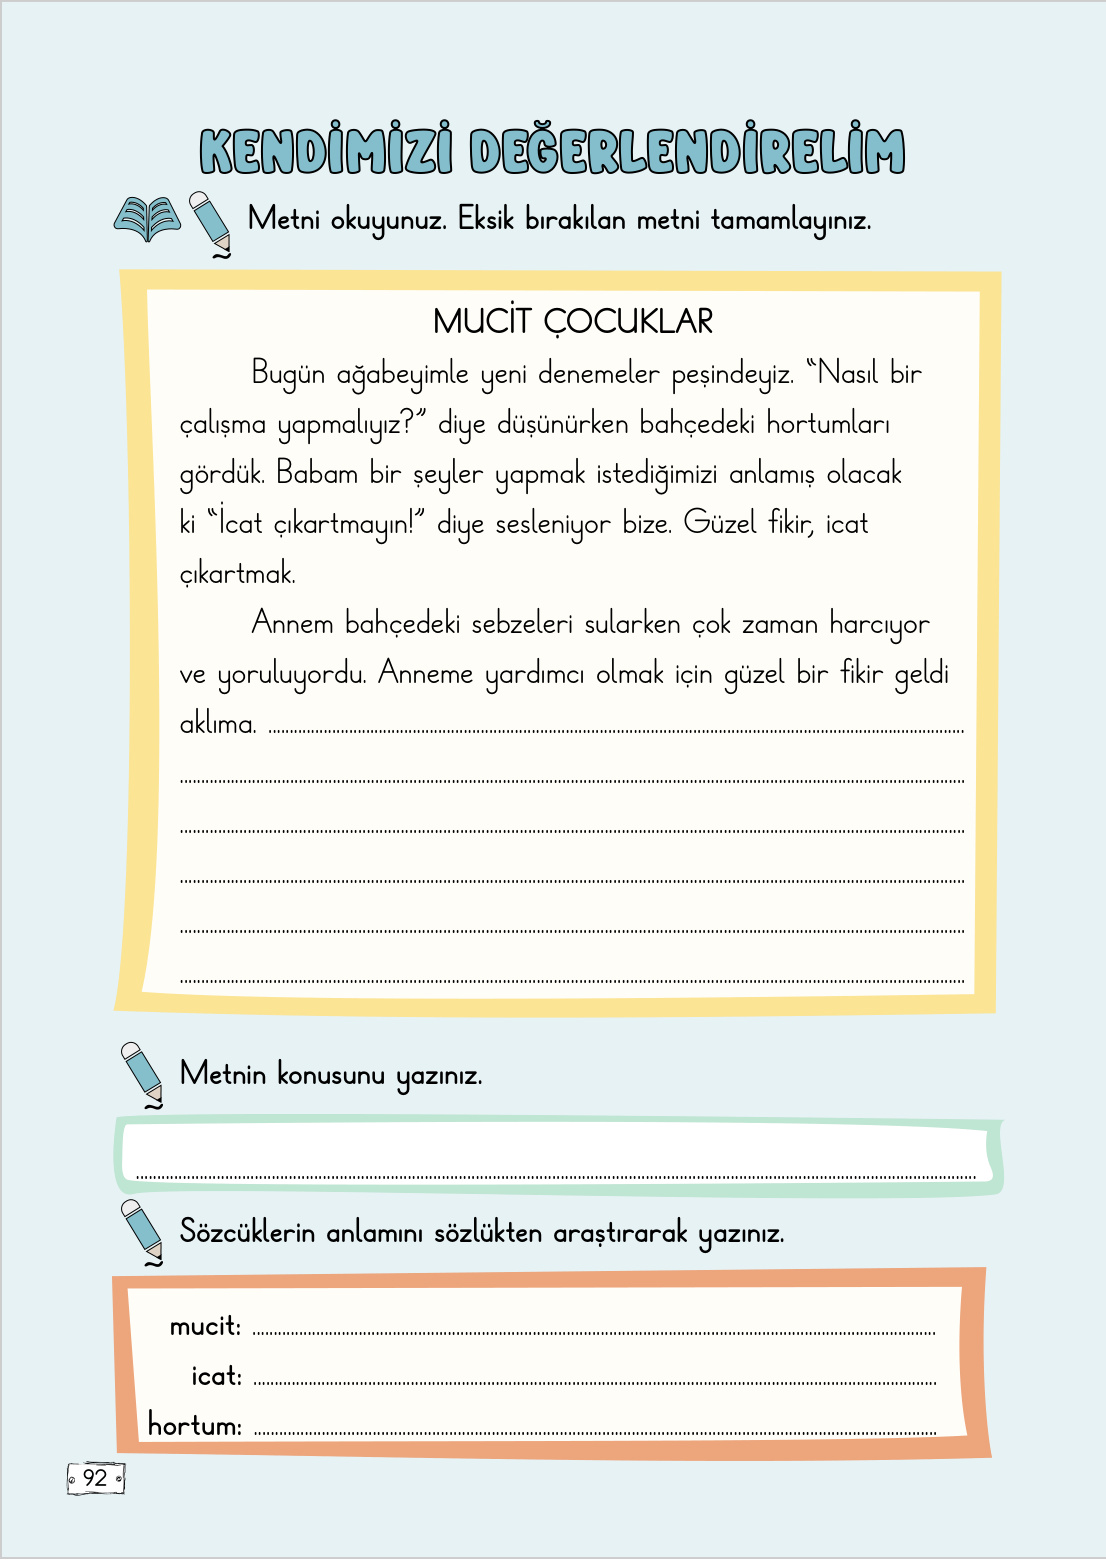 KENDİMİZİ DEĞERLENDİRELİM
Metni okuyunuz. Eksik bırakılan metni tamamlayınız.
MUCİT ÇOCUKLAR
Bugün ağabeyimle yeni denemeler peşindeyiz. “Nasıl bir
çalışma yapmalıyız?” diye düşünürken bahçedeki hortumları
gördük. Babam bir şeyler yapmak istediğimizi anlamış olacak
ki “İcat çıkartmayın!” diye sesleniyor bize. Güzel fikir, icat
çıkartmak.
Annem bahçedeki sebzeleri sularken çok zaman harcıyor
ve yoruluyordu. Anneme yardımcı olmak için güzel bir fikir geldi
aklıma.
Metnin konusunu yazınız.
Sözcüklerin anlamını sözlükten araştırarak yazınız.
mucit:
icat:
hortum:
92